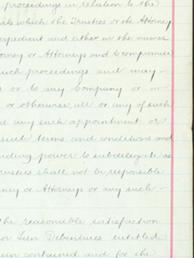 proceedings in relation to the
which the Trustees or the Attorney
expedient and either in the names
Attorney or Attorneys and Compromise
such proceedings and may
or to any Company or
or otherwise all or any of such
any such appointment or
such terms and conditions and
including power to subdelegate as
Trustees shall not be responsible
any or Attorneys or any such
the reasonable satisfaction
or Lien Debentures entitled
contained and for the